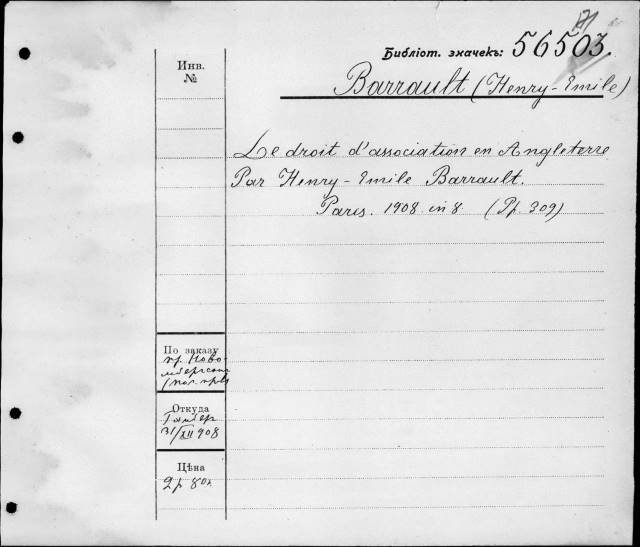 Библіот. значекъ: 56503.
Инв.
№
Barrault (Henry-Emile)
Le droit d'association en Angleterre
Par Henry-Emile Barrault.
Paris. 1908 in 8 (Pp. 309)
По заказу
пр. Ново-
Откуда
31/XII 908
Цѣна
2р 80к